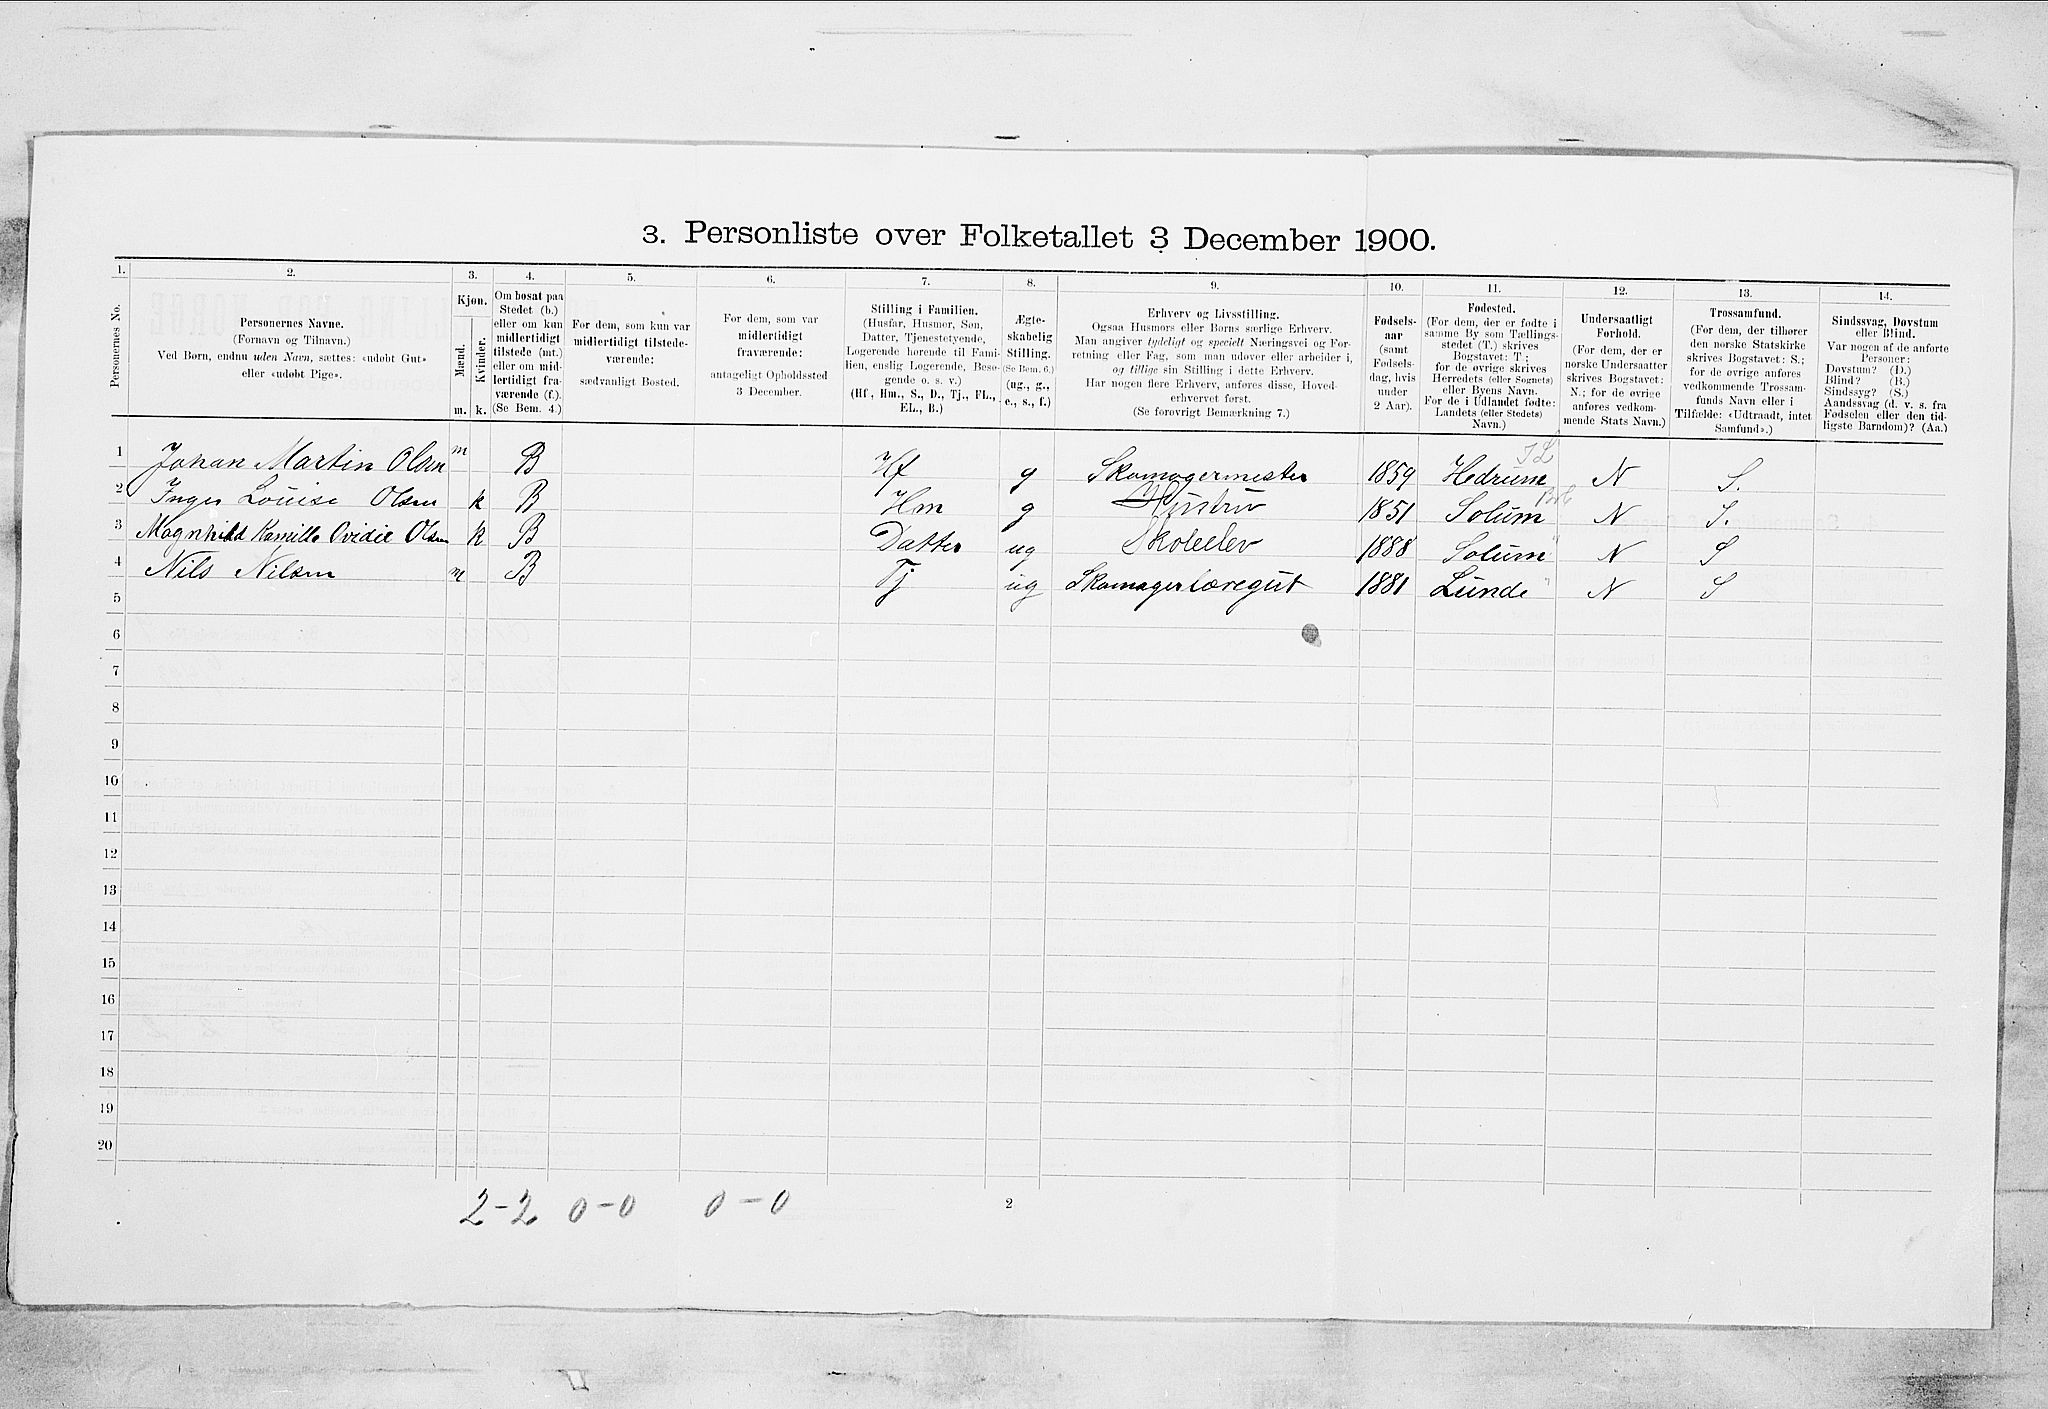 3. Personliste over Folketallet 3 December 1900.
1. 2. 3. 4. 5. 6. 7. 8. 9. 10. 11. 12. 13. 14.
Personernes No.
Personernes Navne.
(Fornavn og Tilnavn).
Ved Børn, endnu uden Navn, sættes: «udøbt Gut»
eller «udøbt Pige».
Kjøn.
Mænd. Kvinder.
m. k.
Om bosat paa
Stedet (b.)
eller om kun
midlertidigt
tilstede (mt.)
eller om mid-
lertidigt fra-
værende (f.).
(Se Bem. 4.)
For dem, som kun var
midlertidigt tilstede-
værende:
sædvanligt Bosted.
For dem, som var
midlertidigt
fraværende:
antageligt Opholdssted
3 December.
Stilling i Familien.
(Husfar, Husmor, Søn,
Datter, Tjenestetyende,
Logerende hørende til Fami-
lien, enslig Logerende, Besø-
gende o. s. v.)
(Hf., Hm., S., D., Tj., FL.,
EL., B.)
Ægte-
skabelig
Stilling.
(Se Bem. 6.)
(ug., g.,
e., s., f.)
Erhverv og Livsstilling.
Ogsaa Husmors eller Børns særlige Erhverv.
Man angiver tydeligt og specielt Næringsvei og For-
retning eller Fag, som man udøver eller arbeider i,
og tillige sin Stilling i dette Erhverv.
Har nogen flere Erhverv, anføres disse, Hoved-
erhvervet først.
(Se forøvrigt Bemærkning 7.)
Fødsels-
aar
(samt
Fødsels-
dag, hvis
under
2 Aar).
Fødested.
(For dem, der er fødte i
samme By som Tællings-
stedet (T.) skrives
Bogstavet: T.;
for de øvrige skrives
Herredets (eller Sognets)
eller Byens Navn.
For de i Udlandet fødte:
Landets (eller Stedets)
Navn.)
Undersaatligt
Forhold.
(For dem, der er
norske Undersaatter
skrives Bogstavet:
N.; for de øvrige
anføres vedkom-
mende Stats Navn.)
Trossamfund.
(For dem, der tilhører
den norske Statskirke
skrives Bogstavet: S.;
for de øvrige anføres
vedkommende Trossam-
funds Navn eller i
Tilfælde: «Udtraadt, intet
Samfund».)
Sindssvag, Døvstum
eller Blind.
Var nogen af de anførte
Personer:
Døvstum? (D.)
Blind? (B.)
Sindssyg? (S.)
Aandssvag (d. v. s. fra
Fødselen eller den tid-
ligste Barndom)? (Aa.)
1 Johan Martin Olsen m B Hf g Skomagermester 1859 Hedrum N S.
2 Inger Louise Olsen k B Hm g Hustru 1851 Solum N S.
3 Magnhild Kamilla Ovidie Olsen k B Datter ug Skoleelev 1888 Solum N S
4 Nils Nilsen m B Tj ug Skomagerlæregut 1881 Lunde N S
5
6
7
8
9
10
11
12
13
14
15
16
17
18
19
20
2-2 0-0 0-0
2